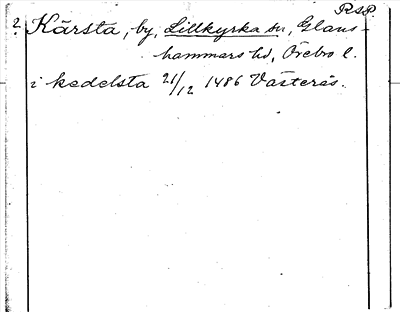 RSP.
2. Kärsta, by, Lillkyrka sn, Glans-
hammars hd, Örebro l.
i kedelsta 21/12 1486 Västerås.